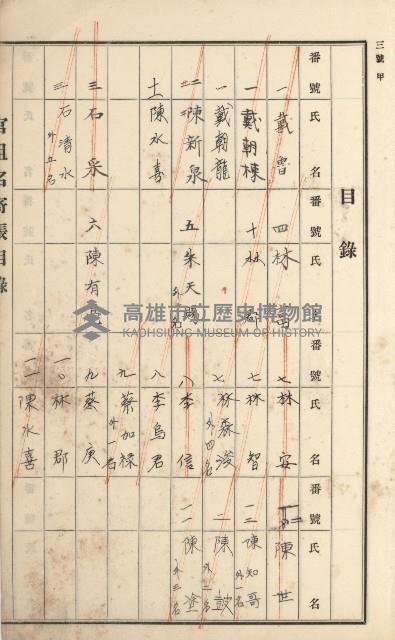 三號甲
目錄
番號 氏名
一 戴曹
一 戴朝棟
一 戴朝龍
二 陳新泉
十一 陳水喜
三 石采
三 石清水 外五名
番號 氏名
四 林
十 林
五 朱天賜
六 陳有
番號 氏名
七 林安
七 林智
七 林森浚 外四名
八 李信
八 李烏君
九 蔡加祿 外一名
九 蔡庚
一〇 林郡
一一 陳水喜
番號 氏名
陳世
一二 陳知哥 外一名
二 陳鼓 外二名
一一 陳塗 外三名
官租名寄帳目錄
高雄市立歷史博物館
KAOHSIUNG MUSEUM OF HISTORY